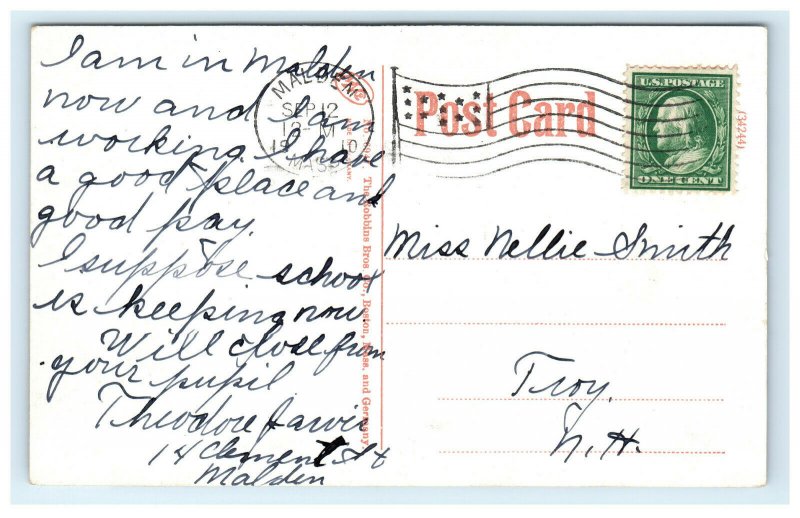 I am in Malden
now and I am
working. I have
a good place and
good pay.
I suppose school
is keeping now.
Will close from
your pupil
Theodore Jarvis
14 Clement St
Malden
MALDEN
SEP 12
12 M
1910
MASS.
Post Card
U.S. POSTAGE
ONE CENT
(34244)
The Robbins Bros. Co., Boston, Mass. and Germany.
Miss Nellie Smith
Troy.
N.H.